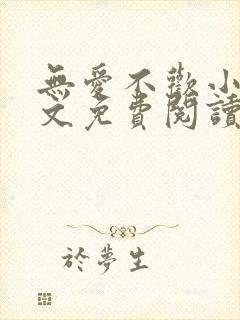 無愛不歡小
文免費閱讀
於夢生